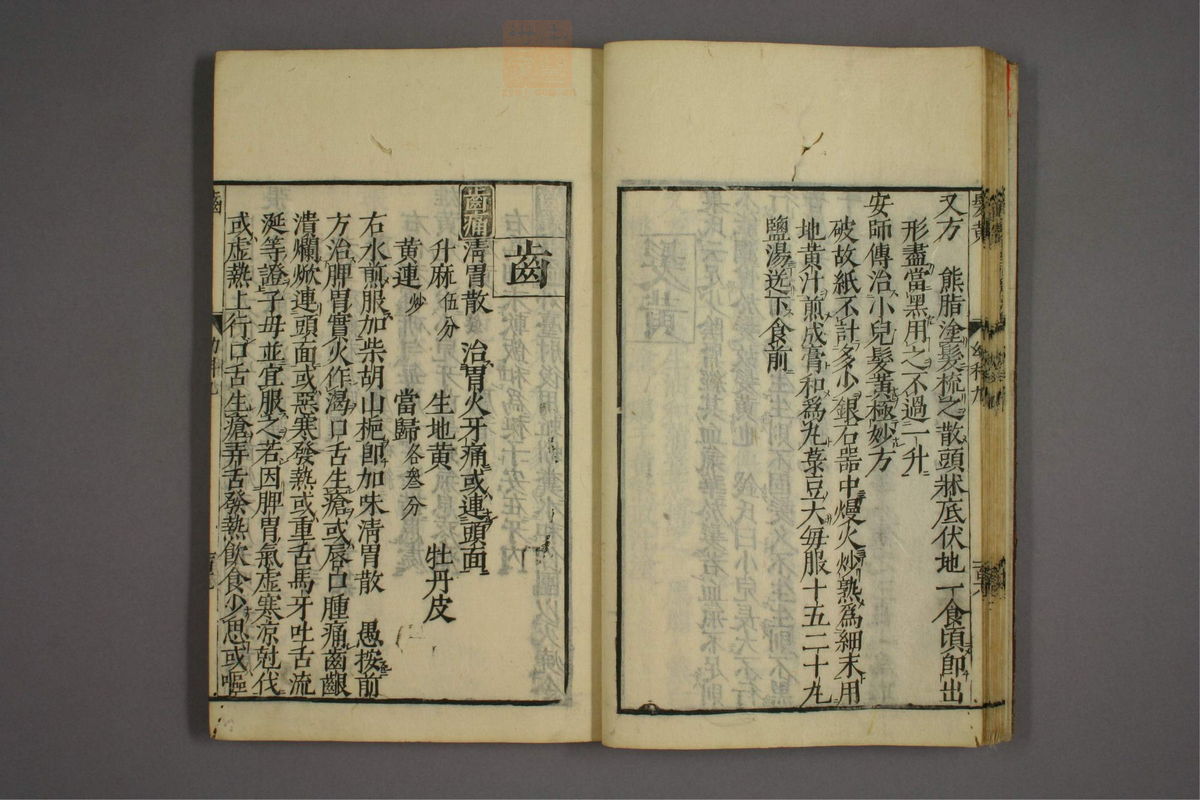 又方　熊脂塗髮梳之散頭牀底伏地一食頃即出
形盡當黑用之不過二升
安師傳治小兒髮黃極妙方
破故紙不計多少銀石器中慢火炒熟為細末用
地黃汁煎成膏和為丸菉豆大每服十五二十丸
鹽湯送下食前
齒
齒痛　清胃散　治胃火牙痛或連頭面
升麻伍分　生地黃　牡丹皮
黃連炒　當歸各叁分
右水煎服加柴胡山梔即加味清胃散　愚按前
方治脾胃實火作渴口舌生瘡或唇口腫痛齒齦
潰爛焮連頭面或惡寒發熱或重舌馬牙吐舌流
涎等證子母並宜服之若因脾胃氣虛寒凉尅伐
或虛熱上行口舌生瘡弄舌發熱飲食少思或嘔